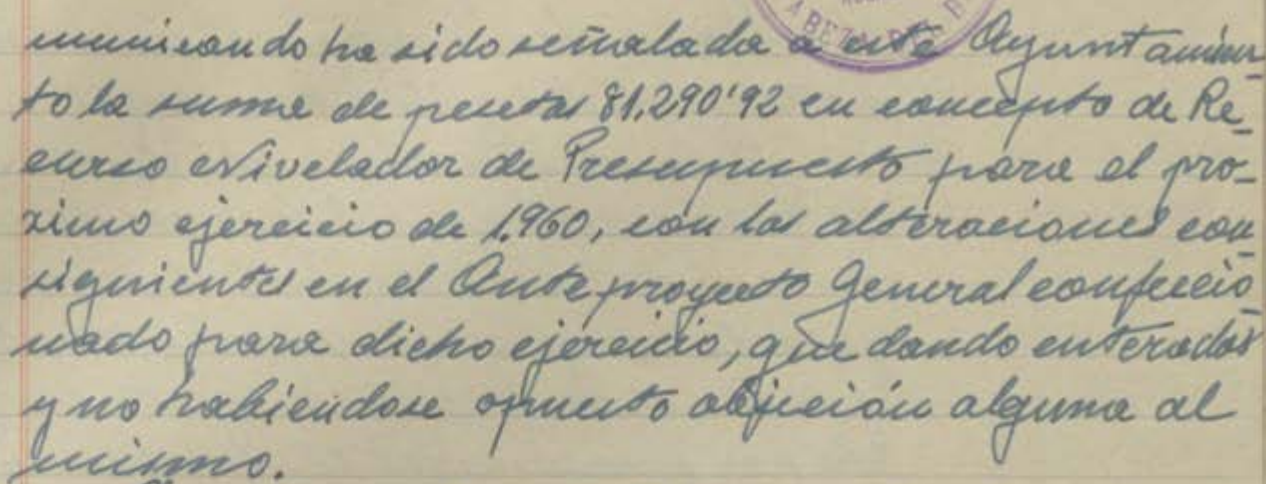 municando ha sido señalada a este Ayuntamien-
to la suma de pesetas 81.290'92 en concepto de Re-
curso Nivelador de Presupuesto para el pro-
ximo ejercicio de 1.960, con las alteraciones con-
siguientes en el Ante proyecto General confeccio-
nado para dicho ejercicio, que dando enterados
y no habiendose opuesto objeción alguna al
mismo.